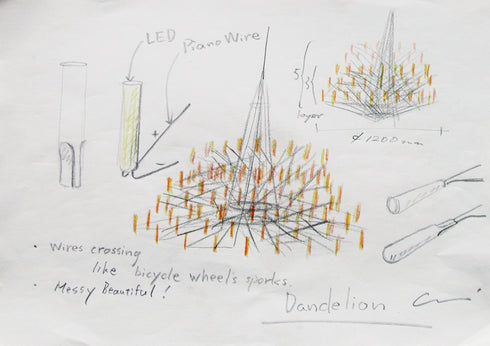 LED
Piano Wire
+
−
5
3
layer
φ1200mm
• Wires crossing
like bicycle wheels sporks.
• Messy Beautiful!
Dandelion